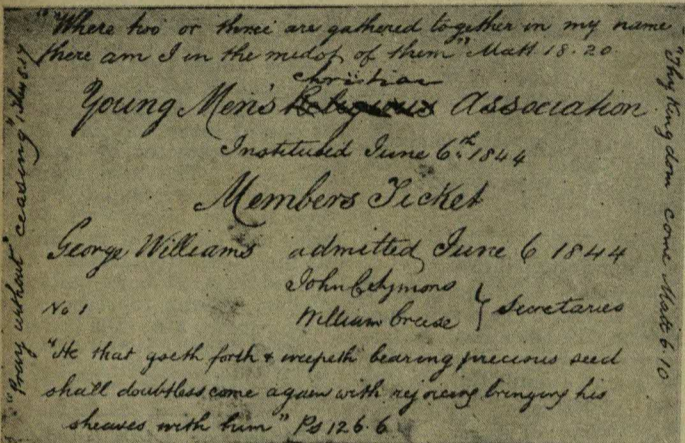 "Where two or three are gathered together in my name
there am I in the midst of them" Matt 18.20.
Christian
Young Men's Religious Association
Instituted June 6th 1844
Members Ticket
George Williams admitted June 6 1844
John C Symons
No 1
William Creese } Secretaries
"He that goeth forth & weepeth bearing precious seed
shall doubtless come again with rejoicing bringing his
sheaves with him" Ps 126.6
"Pray without ceasing"
"Thy Kingdom come Matt 6.10